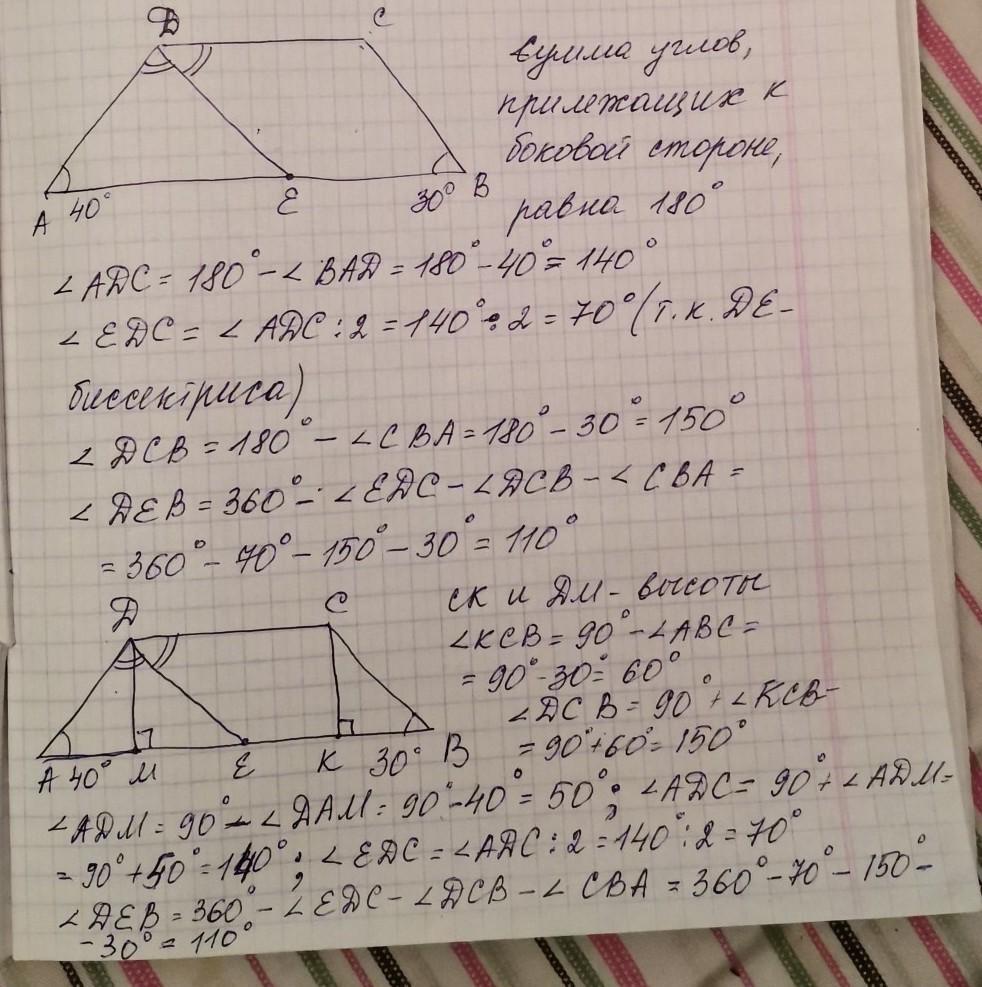 Д C
Сумма углов,
прилежащих к
боковой стороне,
равна 180°
A 40° E 30° B
∠ADC = 180° - ∠BAD = 180° - 40° = 140°
∠EDC = ∠ADC : 2 = 140° : 2 = 70° (т.к. DE-
биссектриса)
∠DCB = 180° - ∠CBA = 180° - 30° = 150°
∠DEB = 360° - ∠EDC - ∠DCB - ∠CBA =
= 360° - 70° - 150° - 30° = 110°
Д C
CK и ДМ - высоты
∠KCB = 90° - ∠ABC =
= 90° - 30° = 60°
∠DCB = 90° + ∠KCB =
= 90° + 60° = 150°
A 40° M E K 30° B
∠ADM = 90° - ∠DAM = 90° - 40° = 50° ; ∠ADC = 90° + ∠ADM =
= 90° + 50° = 140° ; ∠EDC = ∠ADC : 2 = 140° : 2 = 70°
∠DEB = 360° - ∠EDC - ∠DCB - ∠CBA = 360° - 70° - 150° -
- 30° = 110°